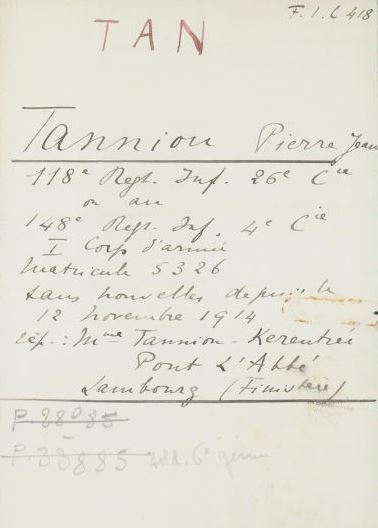 F.I.C 418
TAN
Tanniou Pierre Jean
118e Regt. Inf. 26e Cie
ou au
148e Regt. Inf. 4e Cie
I Corps d'armée
Matricule 5326
sans nouvelles depuis le
12 novembre 1914
rép.: Mme Tanniou-Kerentree
Pont L'Abbé
Lambourg (Finistère)
P. 28085
P. 33885